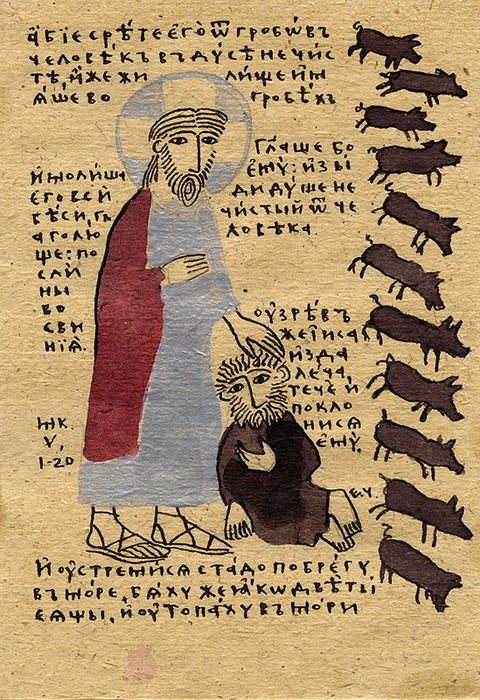 а҆́бїе срѣ́те є҆го̀ ѿ гробѡ́въ
человѣ́къ въ дꙋ́сѣ нечи́с
тѣ, и҆́же жи лище и҆м
ѧ́ше во гробѣ́хъ
глаше бо
ємꙋ: изы
ди дꙋше не
чистый ѿ че
ловѣка
и҆ молиша
єго вси
бѣси, гл
аголю
ще: по
сли
ны
во
сви
нїѧ.
оу҆зрѣвъ
же і҆иса
изда
леча,
тече и
покло
нисѧ
ємꙋ.
мк.
V,
1-20
Е.Ч.
И҆ оу҆стремисѧ стадо по брегу
въ море, бѧху же ꙗкѡ двѣ ты
сѧщы, и҆ оутопаху въ мори